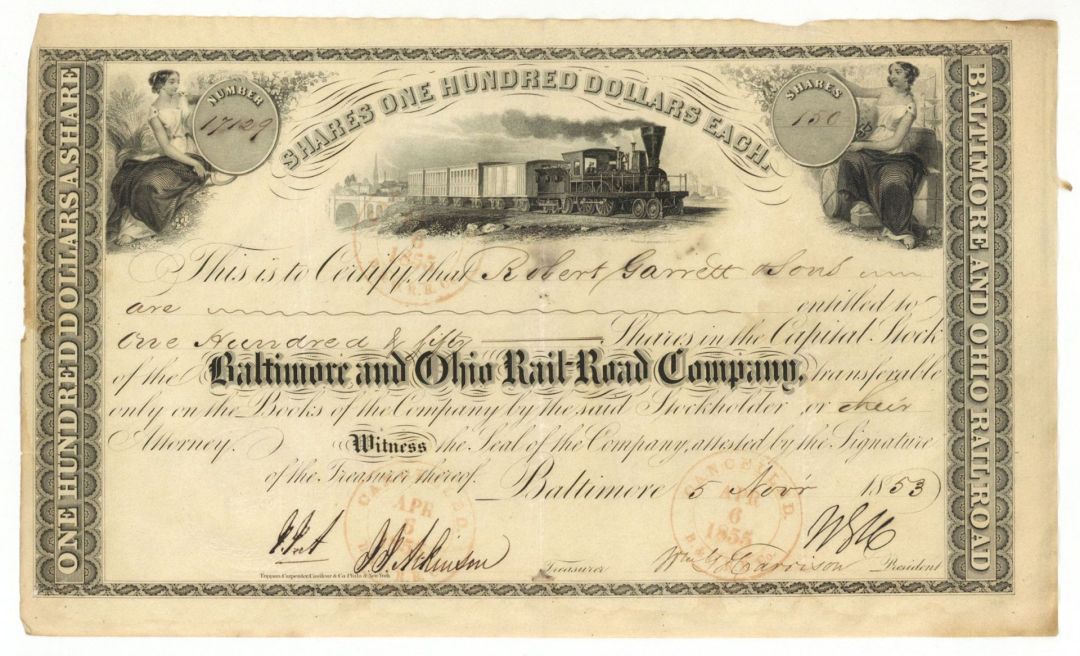 NUMBER
17129
SHARES ONE HUNDRED DOLLARS EACH.
SHARES
150
ONE HUNDRED DOLLARS A SHARE
BALTIMORE AND OHIO RAIL ROAD
This is to Certify, that Robert Garrett & Sons
are entitled to
One Hundred & fifty Shares in the Capital Stock
of the Baltimore and Ohio Rail-Road Company, transferable
only on the Books of the Company by the said Stockholder or their
Attorney. Witness the Seal of the Company, attested by the Signature
of the Treasurer thereof. Baltimore 5 Novr 1853
6
1855
CANCELLED.
APR
6
CANCELLED.
APR
6
1855
J. J. Atkinson Treasurer
Wm G Harrison President
Toppan, Carpenter, Casilear & Co. Phila. & New York